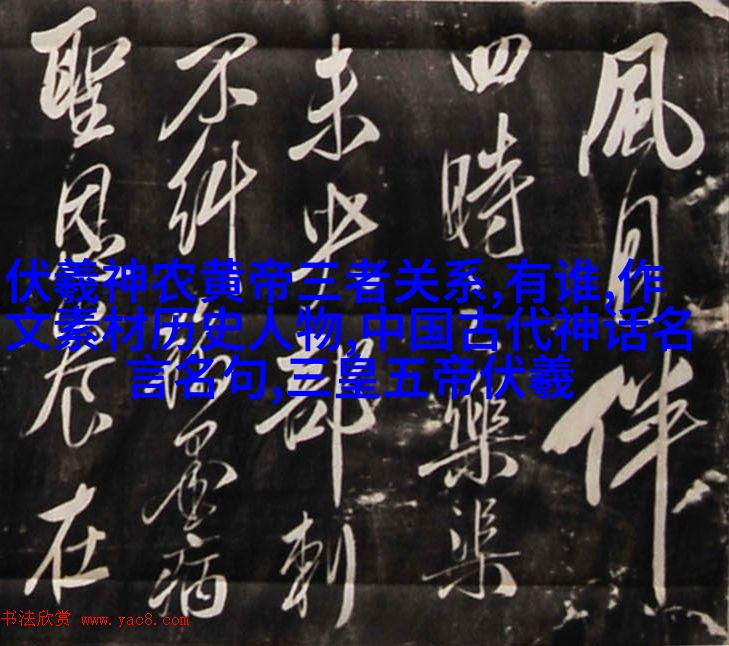 風月伴
四時樂
未部刺
不糾病
聖恩在
伏羲神农黄帝三者关系,有谁,作
文素材历史人物,中国古代神话名
言名句,三皇五帝伏羲
书法欣赏 www.yac8.com